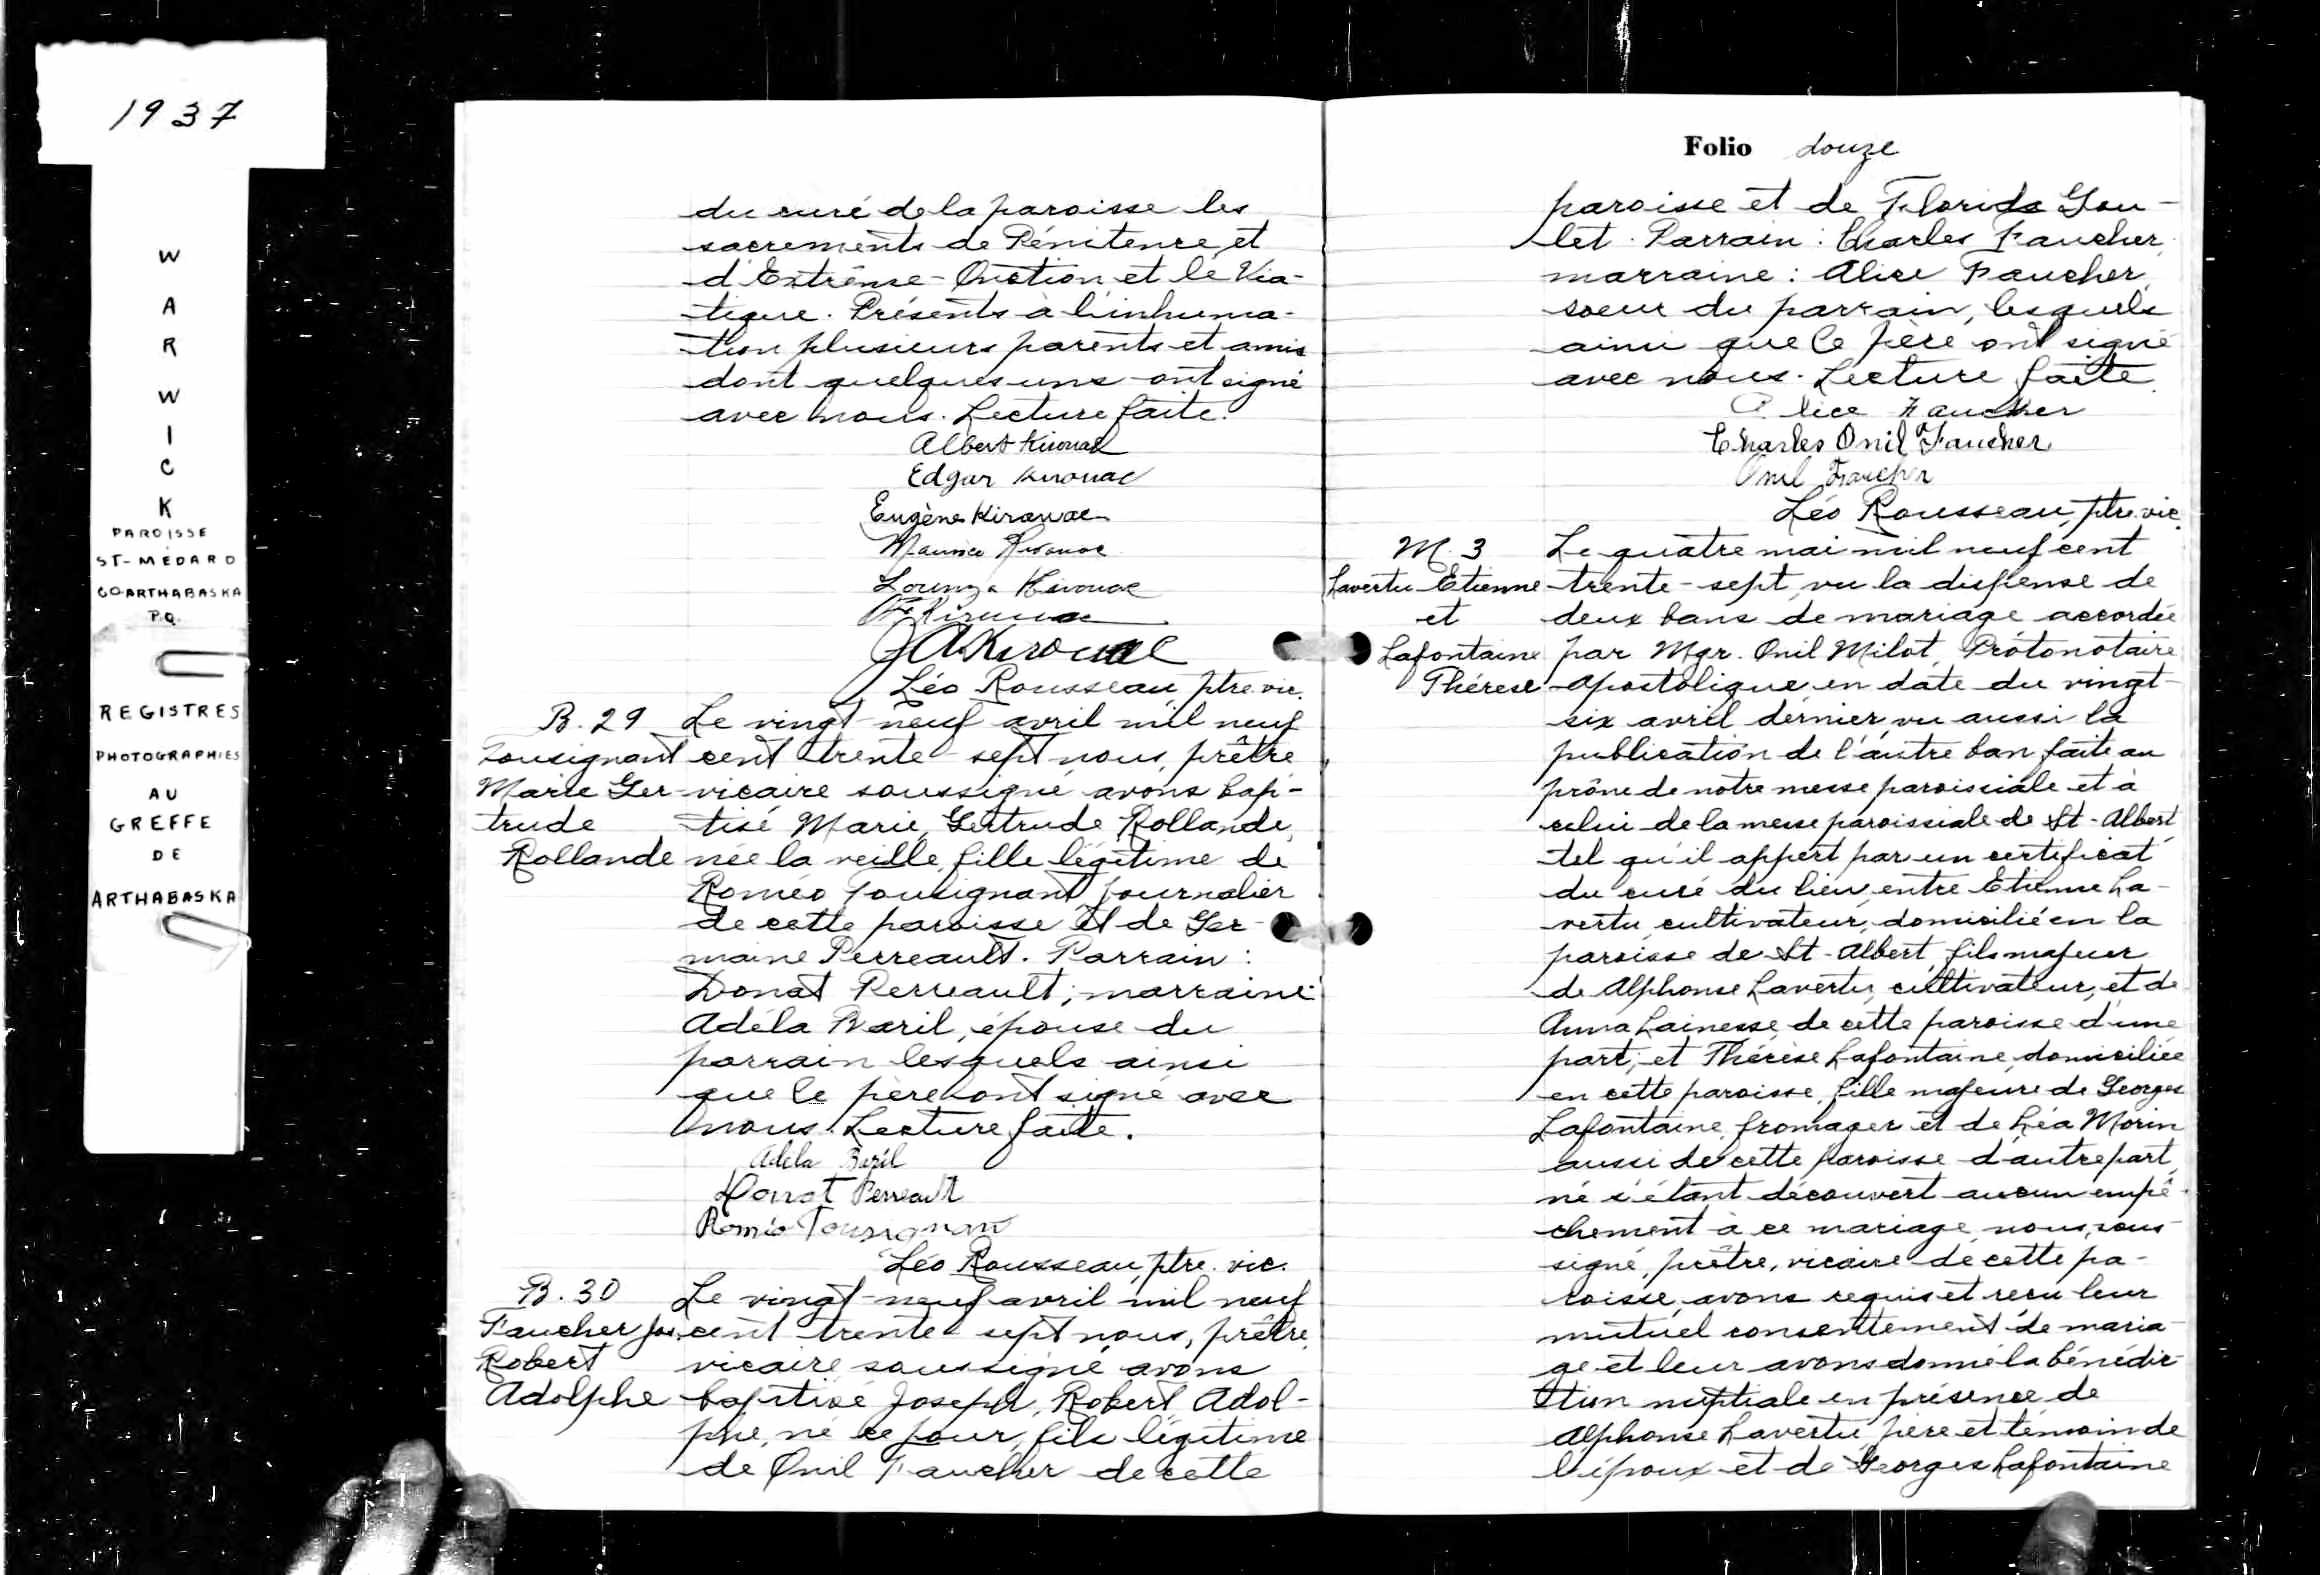 1937
WARWICK
PAROISSE
ST-MÉDARD
CO. ARTHABASKA
P.Q.
REGISTRES
PHOTOGRAPHIES
AU
GREFFE
DE
ARTHABASKA
du curé de la paroisse les
sacrements de Pénitence et
d'Extrême-Onction et le Via-
tique. Présents à l'inhuma-
tion plusieurs parents et amis
dont quelques uns ont signé
avec nous. Lecture faite.
Albert Kirouac
Edgar Kirouac
Eugène Kirouac
Maurice Kirouac
Lorenza Kirouac
Kirouac
J A Kirouac
Léo Rousseau ptre vic.
B. 29 Le vingt-neuf avril mil neuf
Tousignant cent trente-sept nous, prêtre
Marie Ger- vicaire soussigné avons bap-
trude tisé Marie, Gertrude Rollande,
Rollande née la veille, fille légitime de
Roméo Tousignant, journalier
de cette paroisse et de Ger-
maine Perreault. Parrain :
Donat Perreault; marraine:
Adéla Baril, épouse du
parrain lesquels ainsi
que le père ont signé avec
nous. Lecture faite.
Adéla Baril
Donat Perreault
Roméo Tousignant
Léo Rousseau, ptre. vic.
B. 30 Le vingt-neuf avril mil neuf
Faucher Jos. cent trente-sept nous, prêtre,
Robert vicaire soussigné, avons
Adolphe baptisé Joseph, Robert Adol-
phe, né ce jour, fils légitime
de Onil Faucher de cette
Folio douze
paroisse et de Florida Gou-
let. Parrain : Charles Faucher,
marraine : Alice Faucher,
soeur du parrain, lesquels
ainsi que le père ont signé
avec nous. Lecture faite.
Alice Faucher
Charles Onil Faucher
Onil Faucher
Léo Rousseau, ptre. vic.
M. 3 Le quatre mai mil neuf cent
Lavertu Etienne trente-sept, vu la dispense de
et deux bans de mariage accordée
Lafontaine par Mgr. Onil Milot, Protonotaire
Thérèse apostolique en date du vingt-
six avril dernier, vu aussi la
publication de l'autre ban faite au
prône de notre messe paroissiale et à
celui de la messe paroissiale de St-Albert,
tel qu'il appert par un certificat
du curé du lieu, entre Etienne La-
vertu, cultivateur, domicilié en la
paroisse de St-Albert, fils majeur
de Alphonse Lavertu, cultivateur, et de
Anna Lainesse, de cette paroisse d'une
part, et Thérèse Lafontaine, domiciliée
en cette paroisse, fille majeure de Georges
Lafontaine, fromager et de Léa Morin
aussi de cette paroisse d'autre part,
ne s'étant découvert aucun empê-
chement à ce mariage, nous, sous-
signé, prêtre, vicaire de cette pa-
roisse, avons requis et reçu leur
mutuel consentement de maria-
ge et leur avons donné la bénédic-
tion nuptiale en présence de
Alphonse Lavertu, père et témoin de
l'époux et de Georges Lafontaine